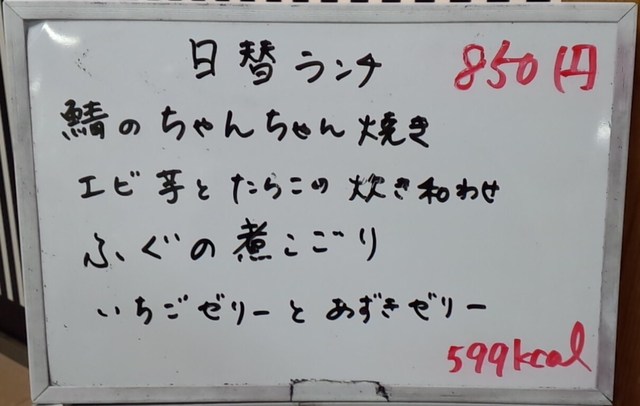 日替ランチ 850円
鯖のちゃんちゃん焼き
エビ芋とたらこの炊き和わせ
ふぐの煮こごり
いちごゼリーとあずきゼリー
599kcal